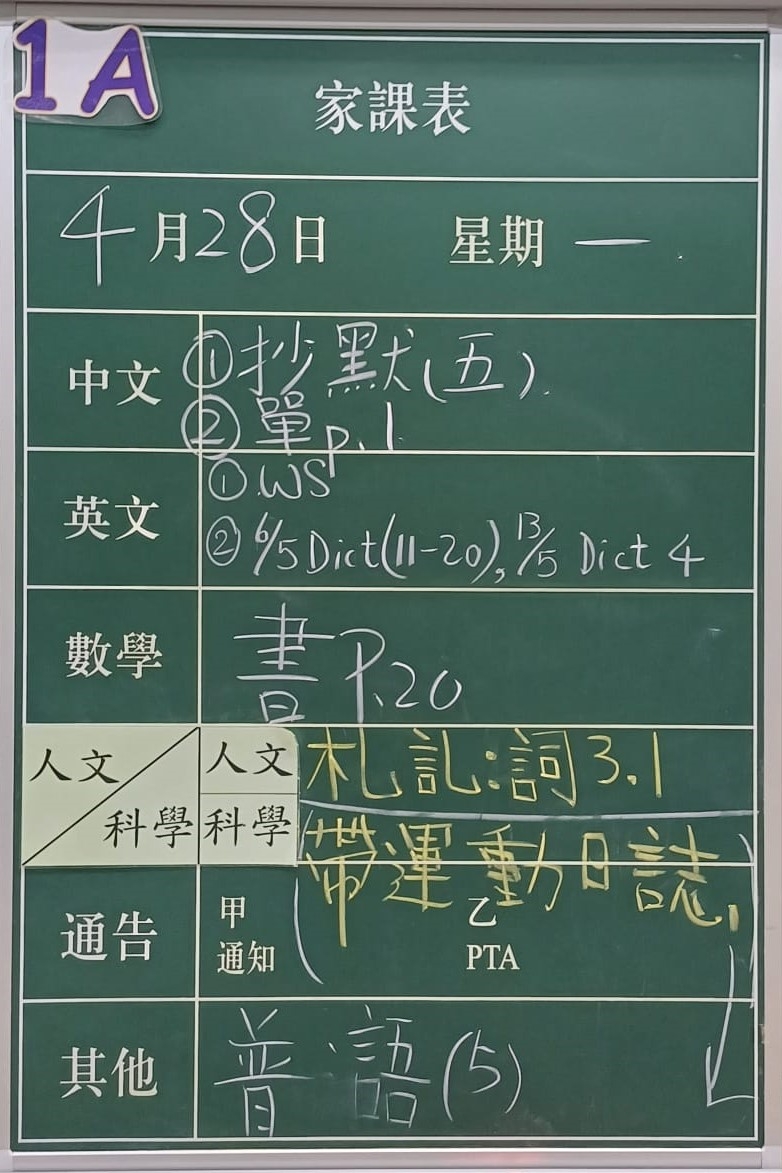 1A
家課表
4月28日 星期一
中文 ①抄默(五)
②單p.1
英文 ①WS
②6/5 Dict(11-20), 13/5 Dict 4
數學 書P.20
人文/科學 人文 札記:詞3.1
科學 (帶運動日誌)
通告 甲 乙
通知 PTA
其他 普.語(5)